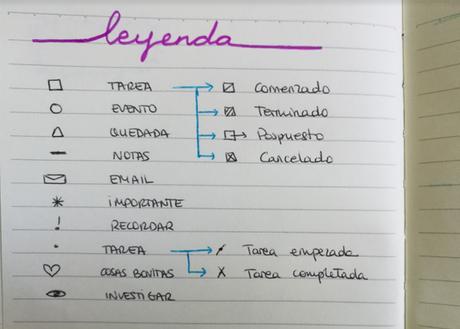 leyenda
TAREA Comenzado
EVENTO Terminado
QUEDADA Pospuesto
NOTAS Cancelado
EMAIL
iMPORTANTE
! RECORDAR
TAREA Tarea empezada
COSAS BONITAS X Tarea completada
INVESTIGAR